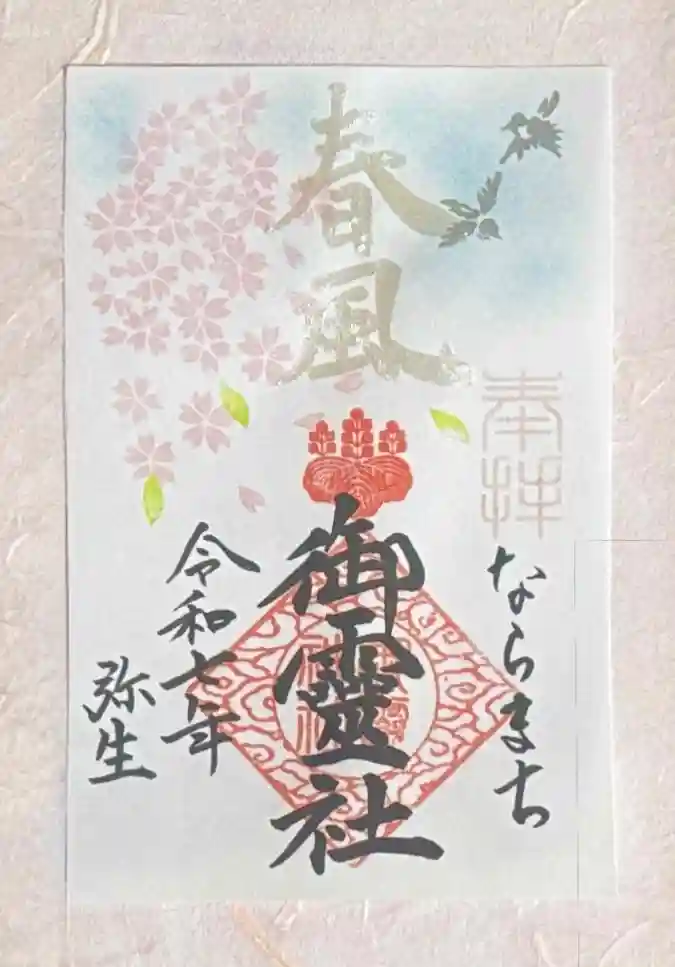 奉拝
ならまち
春風
御靈社
令和七年
弥生